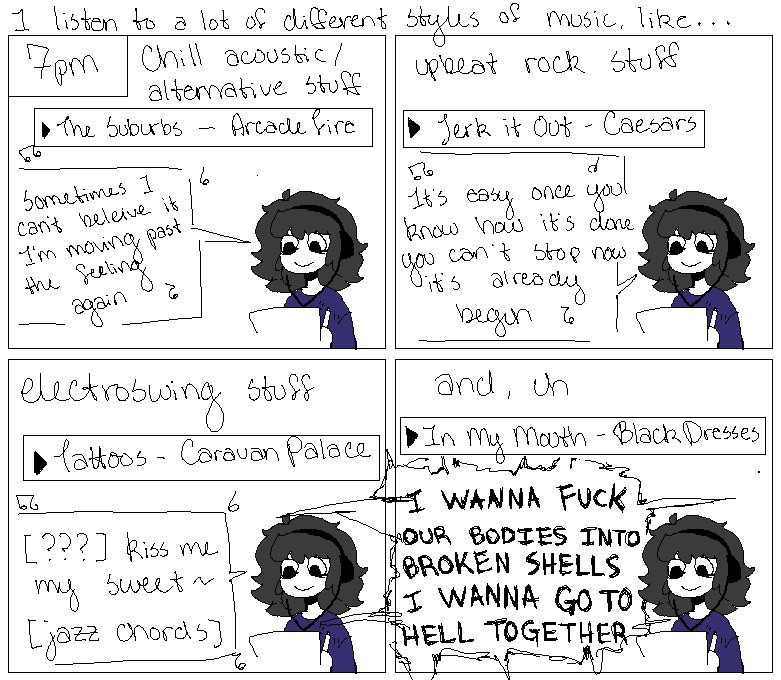 I listen to a lot of different styles of music, like...
7pm
Chill acoustic/
alternative stuff
▶ The Suburbs - Arcade Fire
Sometimes I
can't beleive it
I'm moving past
the feeling
again
upbeat rock stuff
▶ Jerk it Out - Caesars
It's easy once you
know how it's done
you can't stop now
it's already
begun
electroswing stuff
▶ Tattoos - Caravan Palace
[???] kiss me
my sweet~
[jazz chords]
and, uh
▶ In My Mouth - Black Dresses
I WANNA FUCK
OUR BODIES INTO
BROKEN SHELLS
I WANNA GO TO
HELL TOGETHER